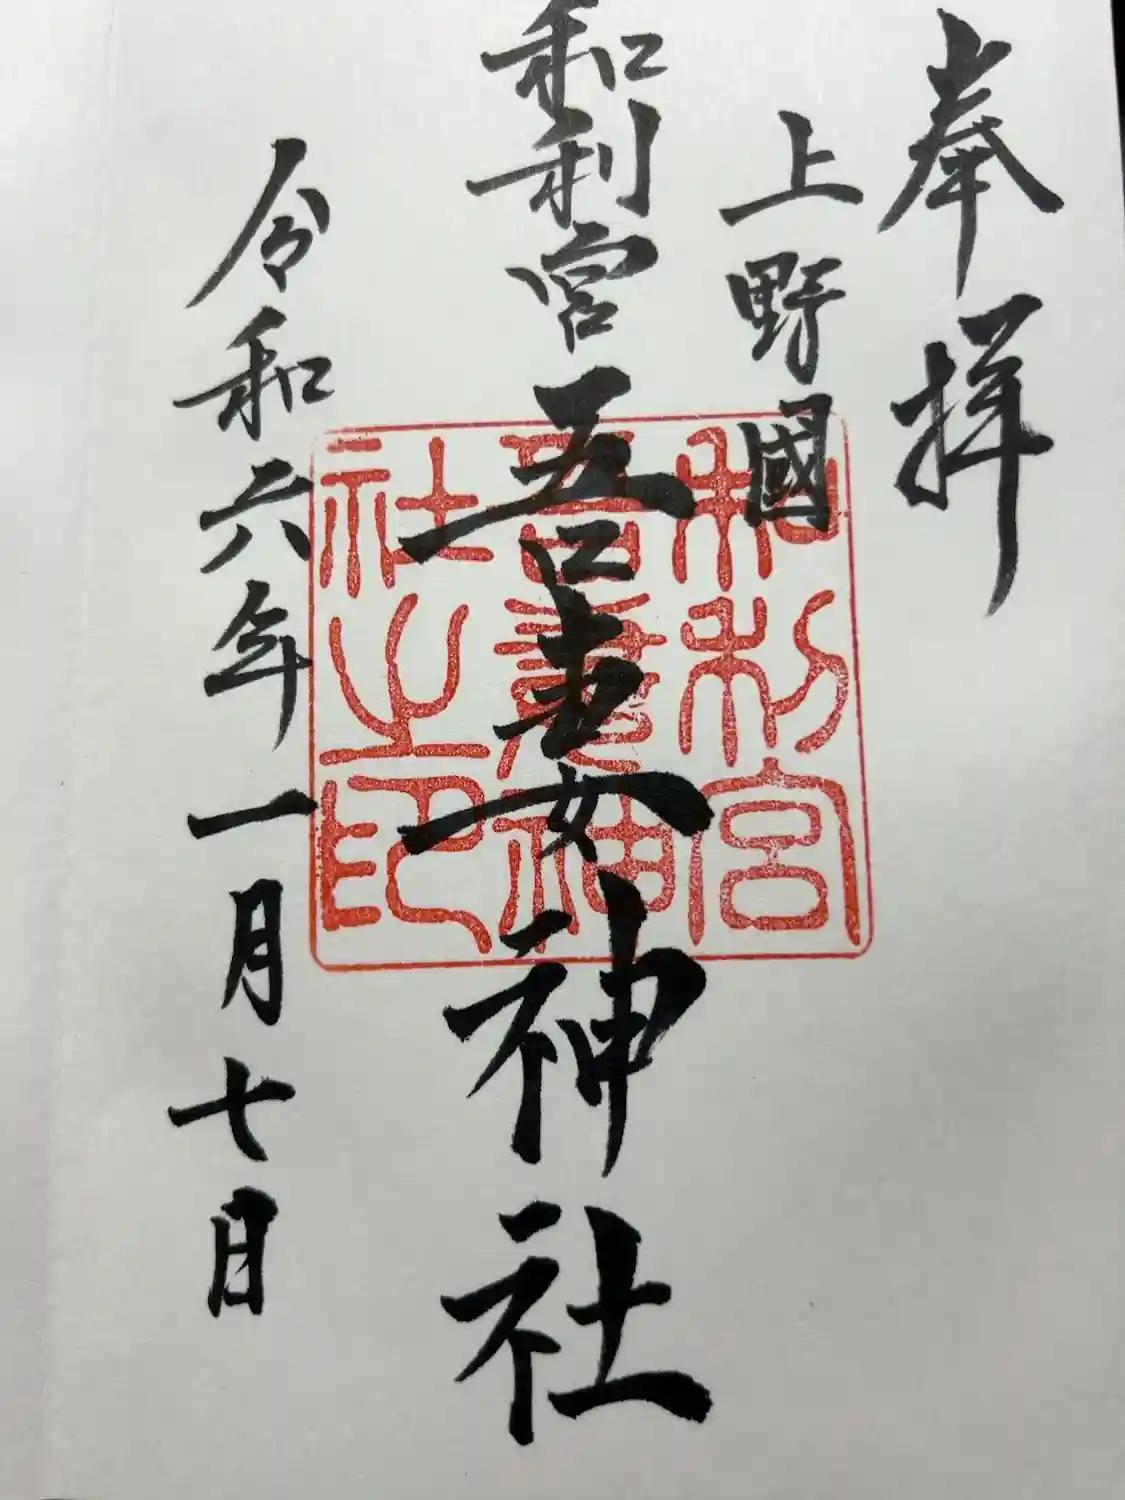 奉拝
上野國
和利宮吾妻神社
令和六年一月七日
和利宮
吾妻神
社之印